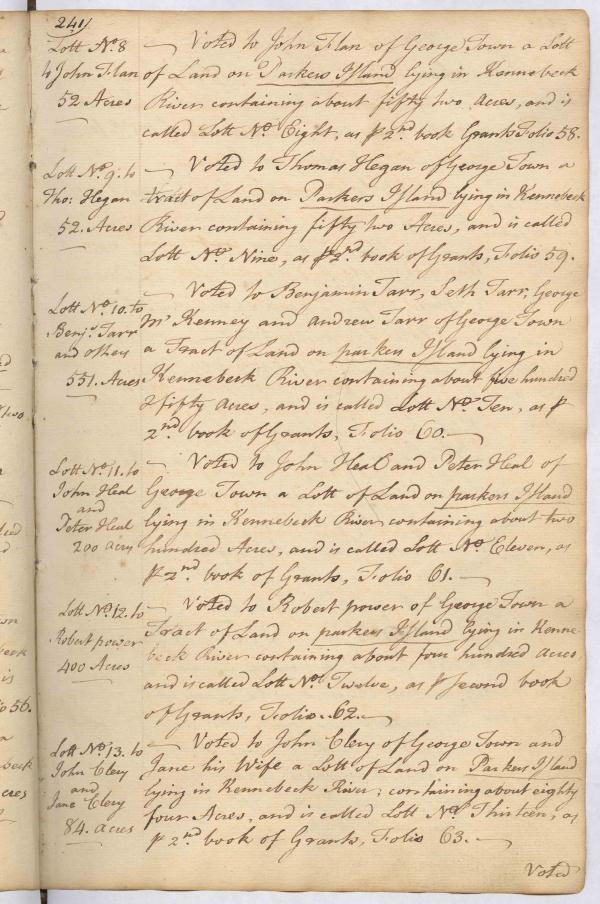 241/
Lott No. 8
to John Flan
52 Acres
— Voted to John Flan of George Town a Lott
of Land on Parkers Island lying in Kennebeck
River containing about fifty two Acres, and is
called Lott No. Eight, as p 2nd. book Grants Folio 58.
Lott No. 9. to
Tho: Hegan
52. Acres
— Voted to Thomas Hegan of George Town a
tract of Land on Parkers Island lying in Kennebeck
River containing fifty two Acres, and is called
Lott No. Nine, as p 2nd. book of Grants, Folio 59.
Lott No. 10. to
Benja. Tarr
and others
551. Acres
— Voted to Benjamin Tarr, Seth Tarr, George
Mc Kenney and Andrew Tarr of George Town
a Tract of Land on parkers Island lying in
Kennebeck River containing about five hundred
& fifty Acres, and is called Lott No. Ten, as p
2nd. book of Grants, Folio 60.—
Lott No. 11. to
John Heal
and
Peter Heal
200 Acrs
— Voted to John Heal and Peter Heal of
George Town a Lott of Land on parkers Island
lying in Kennebeck River containing about two
hundred Acres, and is called Lott No. Eleven, as
p 2nd. book of Grants, Folio 61.—
Lott No. 12. to
Robert power
400 Acres
— Voted to Robert power of George Town a
Tract of Land on parkers Island lying in Kenne-
beck River containing about four hundred Acres,
and is called Lott No. Twelve, as p Second book
of Grants, Folio. 62.—
Lott No. 13. to
John Clery
and
Jane Clery
84. Acres
— Voted to John Clery of George Town and
Jane his Wife a Lott of Land on Parkers Island
lying in Kennebeck River; containing about eighty
four Acres, and is called Lott No. Thirteen, as
p 2nd. book of Grants, Folio 63.—
Voted